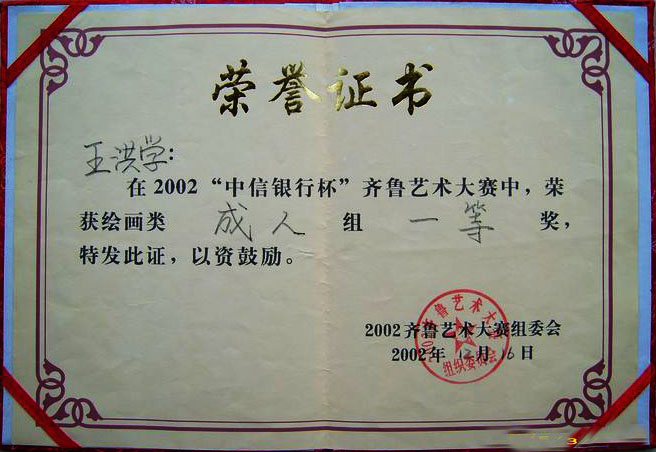 荣誉证书
王洪学:
在2002“中信银行杯”齐鲁艺术大赛中,荣
获绘画类 成人 组 一等 奖,
特发此证,以资鼓励。
2002齐鲁艺术大赛组委会
2002年12月16日
2002齐鲁艺术大赛
组织委员会